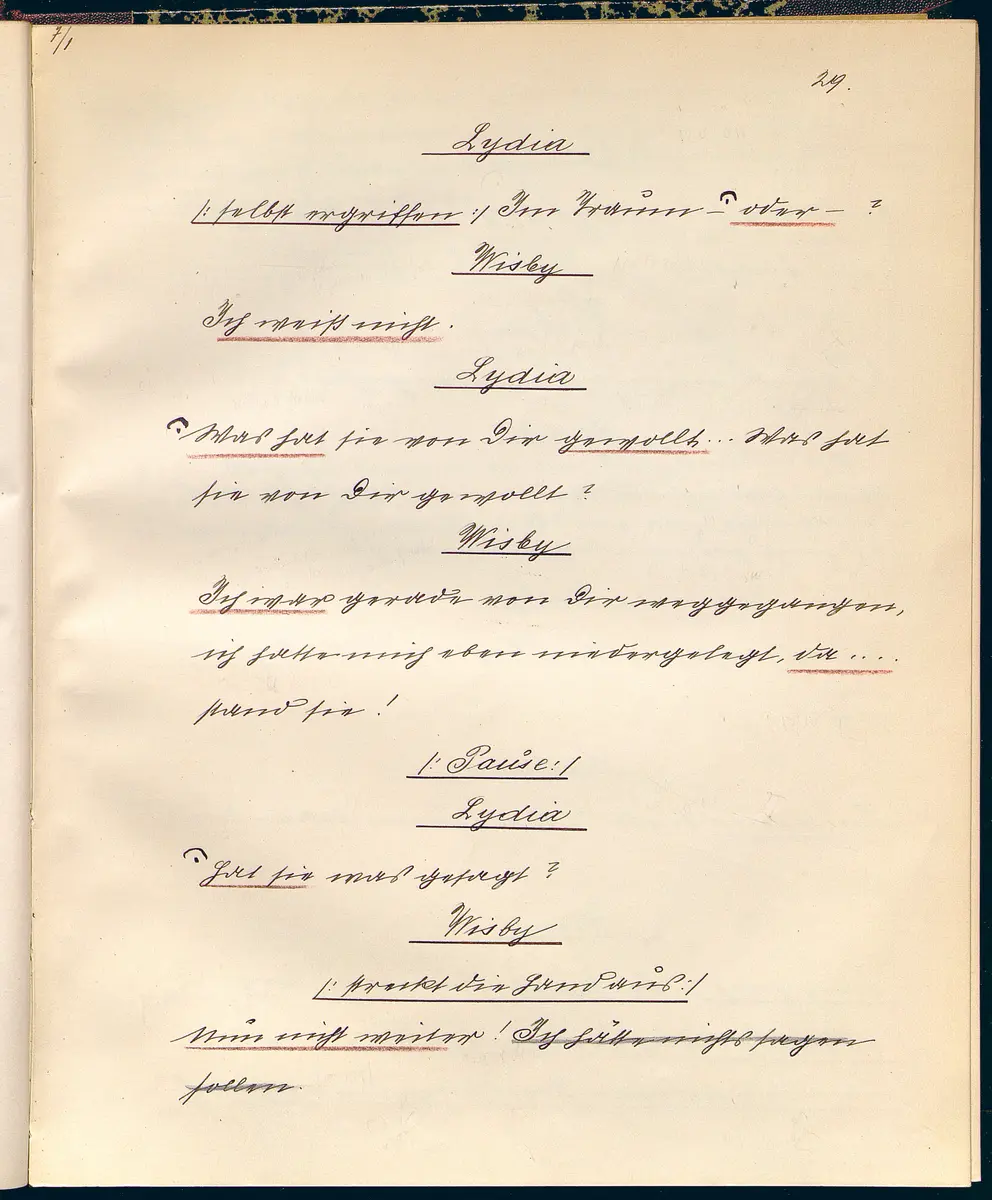 7/1
29.
Lydia
/: selbst ergriffen :/ Im Traum – oder – ?
Wisby
Ich weiß nicht.
Lydia
Was hat sie von Dir gewollt... Was hat
sie von Dir gewollt?
Wisby
Ich war gerade von Dir weggegangen,
ich hatte mich eben niedergelegt, da ....
stand sie!
/: Pause :/
Lydia
Hat sie was gesagt?
Wisby
/: streckt die Hand aus :/
Nun nicht weiter! Ich hätte nichts sagen
sollen.